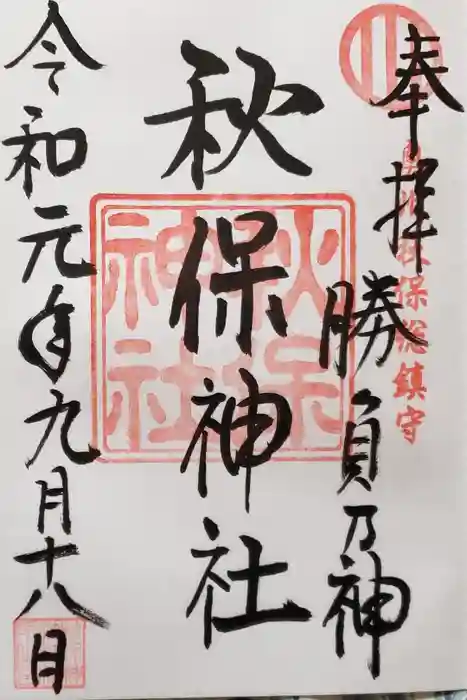 奉拝
奥州秋保総鎮守
勝負乃神
秋保神社
秋保
神社
令和元年九月十八日